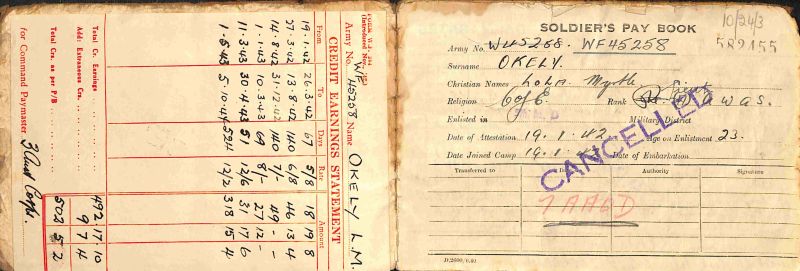 FORM W.d. 284
(Introduced Nov. 1942)
CREDIT EARNINGS STATEMENT
Army No. WF 45258 Name OKELY L.M.
From To Days Rate Amount
19.1.42 26.3.42 67 5/8 18 19 8
27.3.42 13.8.42 140 6/8 46 13 4
14.8.42 31.12.42 140 7/- 49 - -
1.1.43 10.3.43 69 8/- 27 12 -
11.3.43 30.4.43 51 12/6 31 17 6
1.5.43 5.10.44 524 12/2 318 15 4
Total Cr. Earnings 492 17 10
Add: Extraneous Crs. 9 7 4
Total Crs. as per P/B 502 5 2
for Command Paymaster 3 Aust Corps.
SOLDIER'S PAY BOOK
10/24/3
589155
Army No. W45258. WF45258
Surname OKELY.
Christian Names Lola. Myrtle
Religion C of E Rank A W A S.
Enlisted in Military District
Date of Attestation 19.1.42 Age on Enlistment 23.
Date Joined Camp 19.1.42 Date of Embarkation
CANCELLED
Transferred to Date Authority Signature
7 AAOD
D.2600/6.41